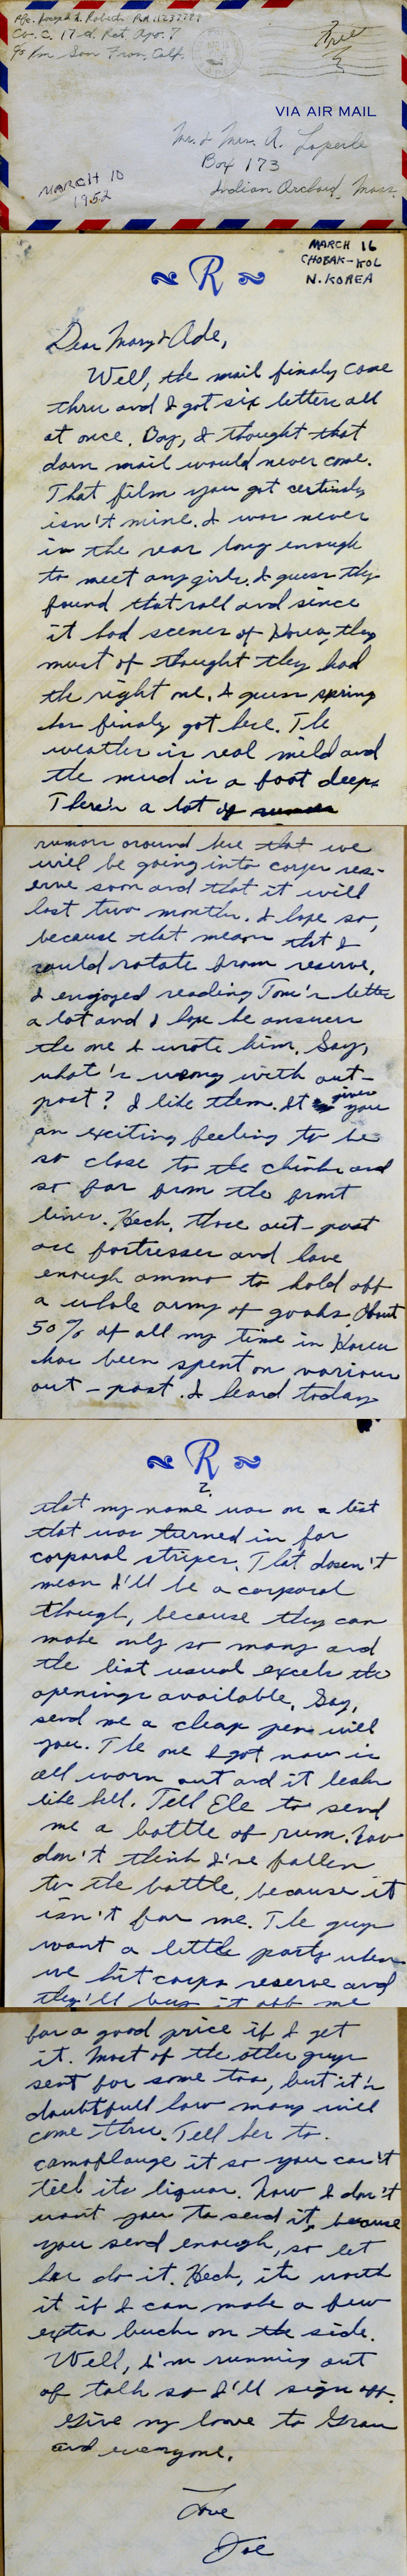 Pfc. Joseph L. Robich RA 11237787
Co. C. 17th Rgt Apo. 7
c/o Pm San Fran, Calf.
Free
VIA AIR MAIL
Mr. & Mrs. A. Laperle
Box 173
Indian Orchard, Mass.
MARCH 10
1952
MARCH 16
CHOBAK-KOL
N. KOREA
R
Dear Mary & Ade,
Well, the mail finaly came
thru and I got six letters all
at once. Boy, I thought that
darn mail would never come.
That film you got certinly
isn't mine. I was never
in the rear long enough
to meet any girls. I guess they
found that roll and since
it had scenes of Korea, they
must of thought they had
the right one. I guess spring
has finaly got here. The
weather is real mild and
the mud is a foot deep.
There's a lot of
rumors around here that we
will be going into corps res-
erve soon and that it will
last two months. I hope so,
because that means that I
could rotate from reserve.
I enjoyed reading Tom's letter
a lot and I hope he answers
the one I wrote him. Say,
what's wrong with out-
post? I like them. It gives you
an exciting feeling to be
so close to the chinks and
so far from the front
lines. Heck, those out-post
are fortresses and have
enough ammo to hold off
a whole army of gooks. About
50% of all my time in Korea
has been spent on various
out-post. I heard today
R
2.
that my name was on a list
that was turned in for
corporal stripes. That dosen't
mean I'll be a corporal
though, because they can
make only so many and
the list usual excels the
openings available. Say,
send me a cheap pen will
you. The one I got now is
all worn out and it leaks
like hell. Tell Ele to send
me a bottle of rum. Now
don't think I've fallen
to the bottle, because it
isn't for me. The guys
want a little party when
we hit corps reserve and
they'll buy it off me
for a good price if I get
it. Most of the other guys
sent for some too, but it's
doubtfull how many will
come thru. Tell her to
camoflauge it so you can't
tell its liquor. Now I don't
want you to send it, because
you send enough, so let
her do it. Heck, its worth
it if I can make a few
extra bucks on the side.
Well, I'm running out
of talk so I'll sign off.
Give my love to Gram
and everyone.
Love
Joe